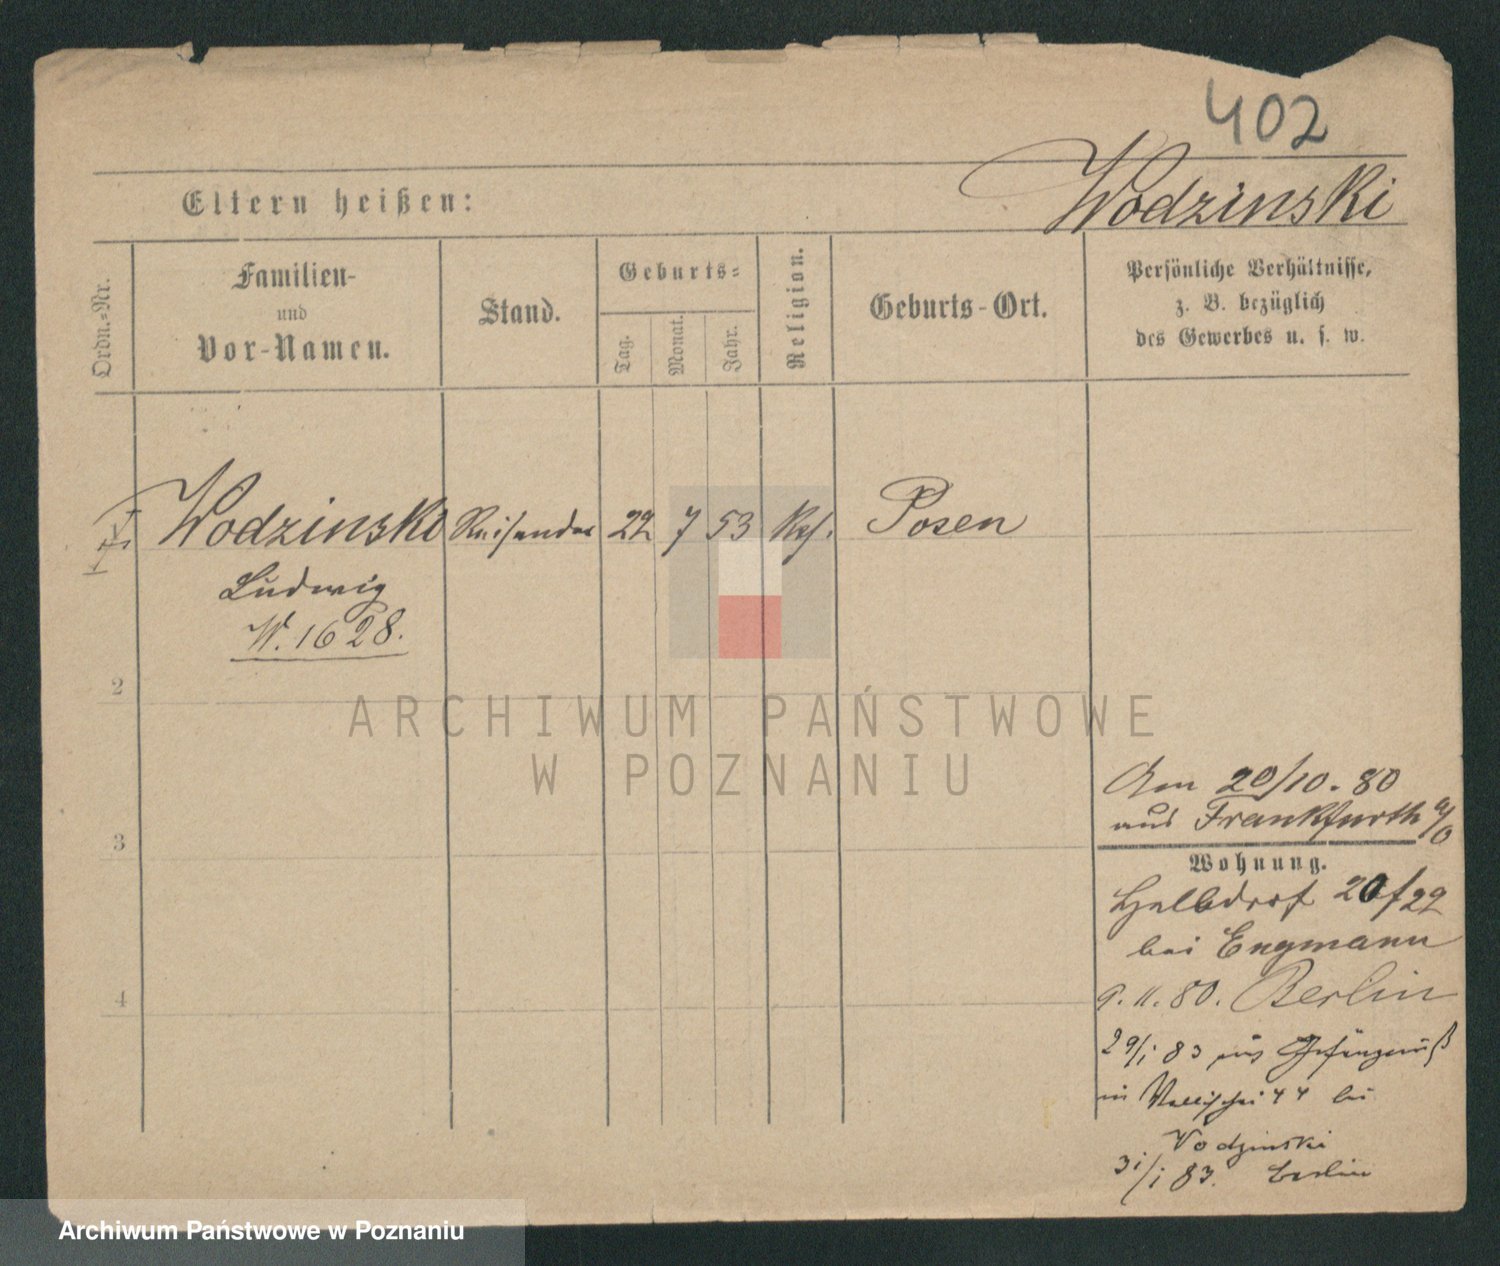 402
Wodzinski
Eltern heißen:
Ordn.=Nr.
Familien-
und
Vor-Namen.
Stand.
Geburts=
Tag.
Monat.
Jahr.
Religion.
Geburts-Ort.
Persönliche Verhältnisse,
z. B. bezüglich
des Gewerbes u. s. w.
Wodzinski Reisender 22 7 53 Posen
Ludwig
W. 1628.
2
3
4
ARCHIWUM PAŃSTWOWE
W POZNANIU
20/10. 80
aus Frankfurth a/O
Wohnung.
Halbdorf 20/22
bei Engmann
9. 11. 80. Berlin
29/1 83 aus Gefängniß
in Wallischei 44 bei
Wodzinski
31/1 83. Berlin
Archiwum Państwowe w Poznaniu